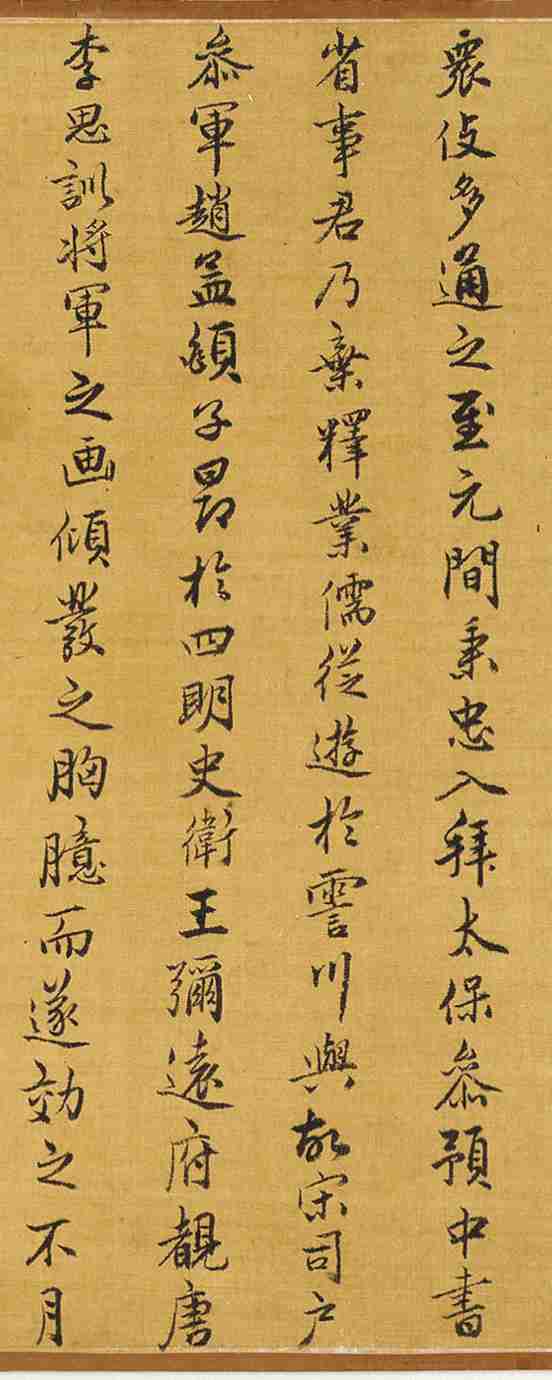 衆伎多通之至元間秉忠入拜太保叅預中書
省事君乃棄釋業儒從遊於霅川與故宋司户
叅軍趙孟頫子昂於四明史衛王彌遠府覩唐
李思訓將軍之画傾發之胸臆而遂効之不月